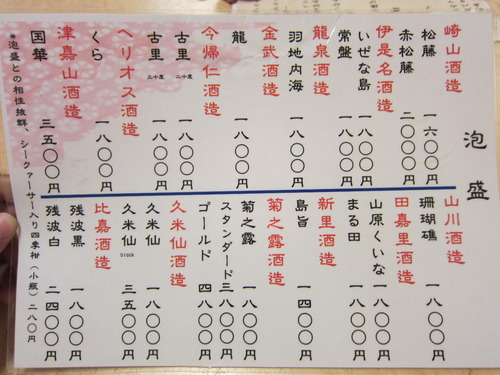 泡盛
崎山酒造
松藤 一六〇〇円
赤松藤 二〇〇〇円
伊是名酒造
いぜな島 一八〇〇円
常盤 一八〇〇円
龍泉酒造
羽地内海 一八〇〇円
金武酒造
龍 一八〇〇円
今帰仁酒造
古里 二十度 一八〇〇円
古里 三十度 一八〇〇円
ヘリオス酒造
くら 一八〇〇円
津嘉山酒造
国華 三五〇〇円
山川酒造
珊瑚礁 一八〇〇円
田嘉里酒造
山原くいな 一八〇〇円
まる田 一八〇〇円
新里酒造
島旨 一四〇〇円
菊之露酒造
菊之露 一八〇〇円
スタンダード 三八〇〇円
ゴールド 四八〇〇円
久米仙酒造
久米仙 一八〇〇円
久米仙 black 三五〇〇円
比嘉酒造
残波黒 一八〇〇円
残波白 二四〇〇円
*泡盛との相性抜群、シークァーサー入り四季柑(小瓶)二八〇円